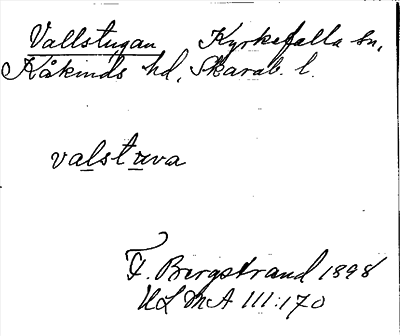 Vallstugan Kyrkefalla sn,
Kåkinds hd, Skarab. l.
valstuva
F. Bergstrand 1898
ULMA 111:170